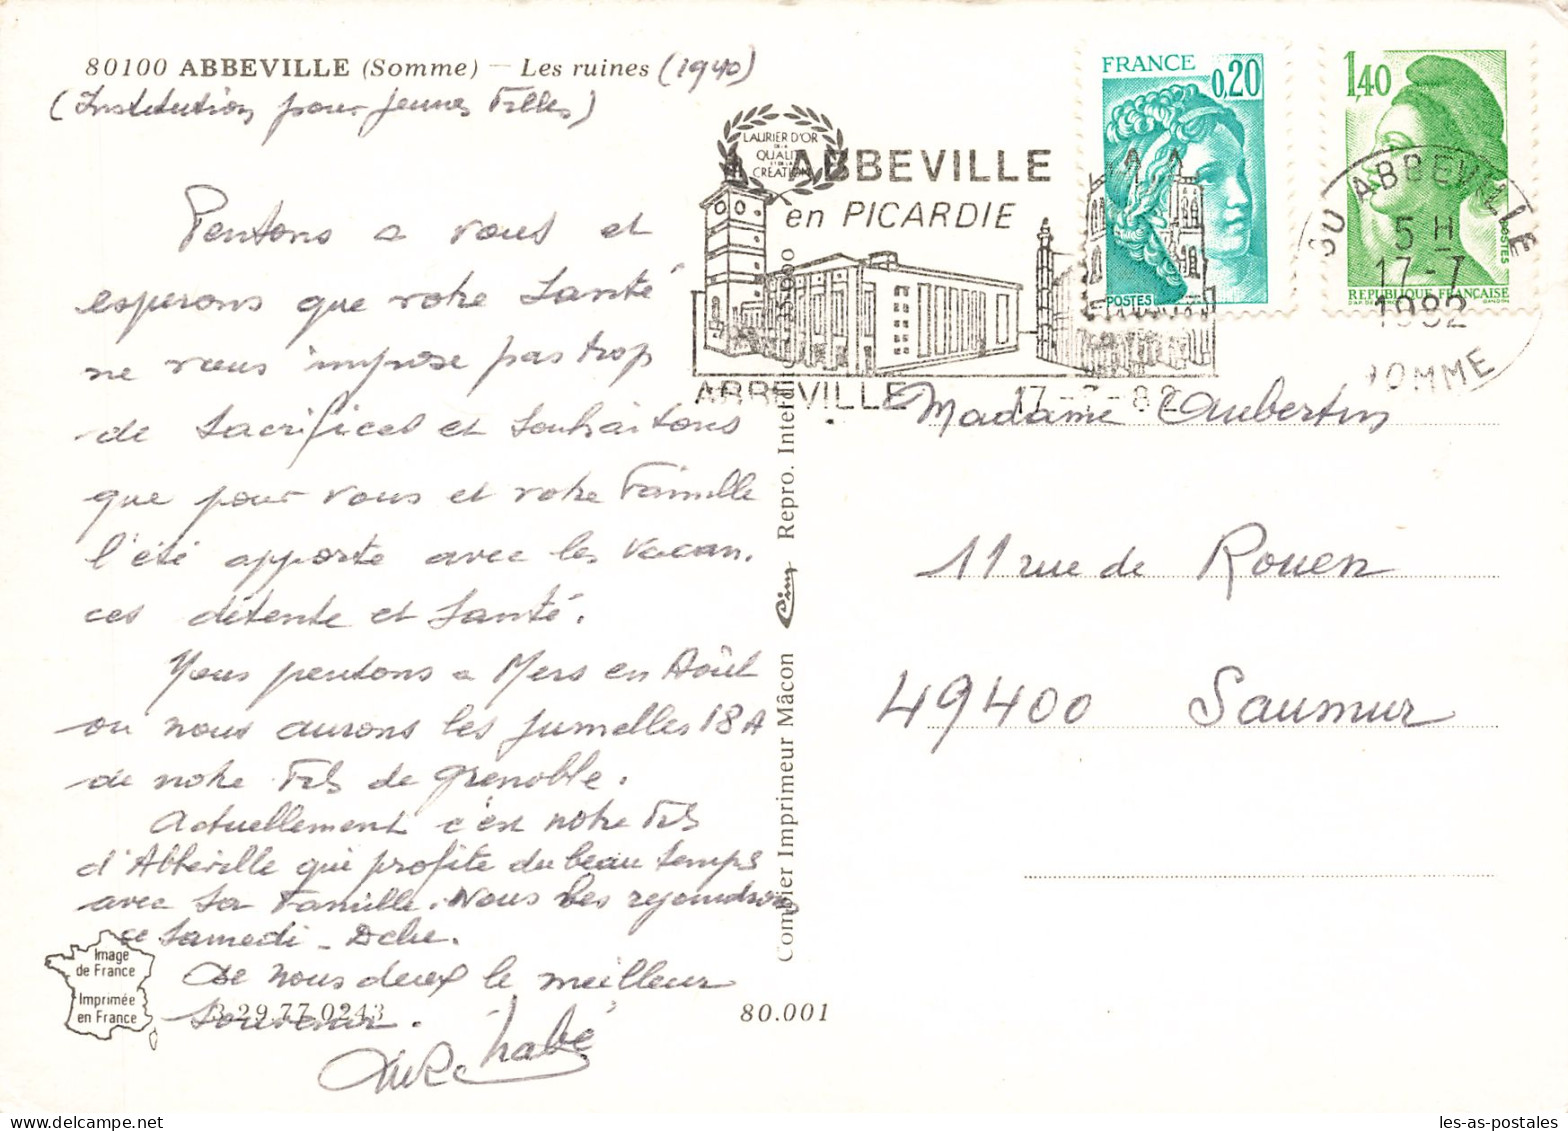 80100 ABBEVILLE (Somme) — Les ruines (1940)
(Institution pour jeunes Filles)
Pensons a vous et
esperons que votre Santé
ne vous impose pas trop
de Sacrifices et Souhaitons
que pour vous et votre Famille
l'été apporte avec les vacan.
ces détente et Santé.
Nous pensons a Mers en Août
ou nous aurons les jumelles 18 A
de notre Fils de Grenoble.
Actuellement c'est notre Fils
d'Abbeville qui profite du beau temps
avec Sa Famille. Nous les rejoindrons
ce Samedi - Dche.
De nous deux le meilleur
Souvenir.
Image
de France
Imprimée
en France
B 29.77.0243
80.001
Combier Imprimeur Mâcon Cim Repro. Interdite
LAURIER D'OR
DE LA
QUALITÉ
ET DE LA
CRÉATION
ABBEVILLE
en PICARDIE
ABBEVILLE 17-7-82
FRANCE
0,20
POSTES
1,40
POSTES
REPUBLIQUE FRANÇAISE
80 ABBEVILLE
5 H
17-7
1982
SOMME
Madame Aubertin
11 rue de Rouen
49400 Saumur
les-as-postales